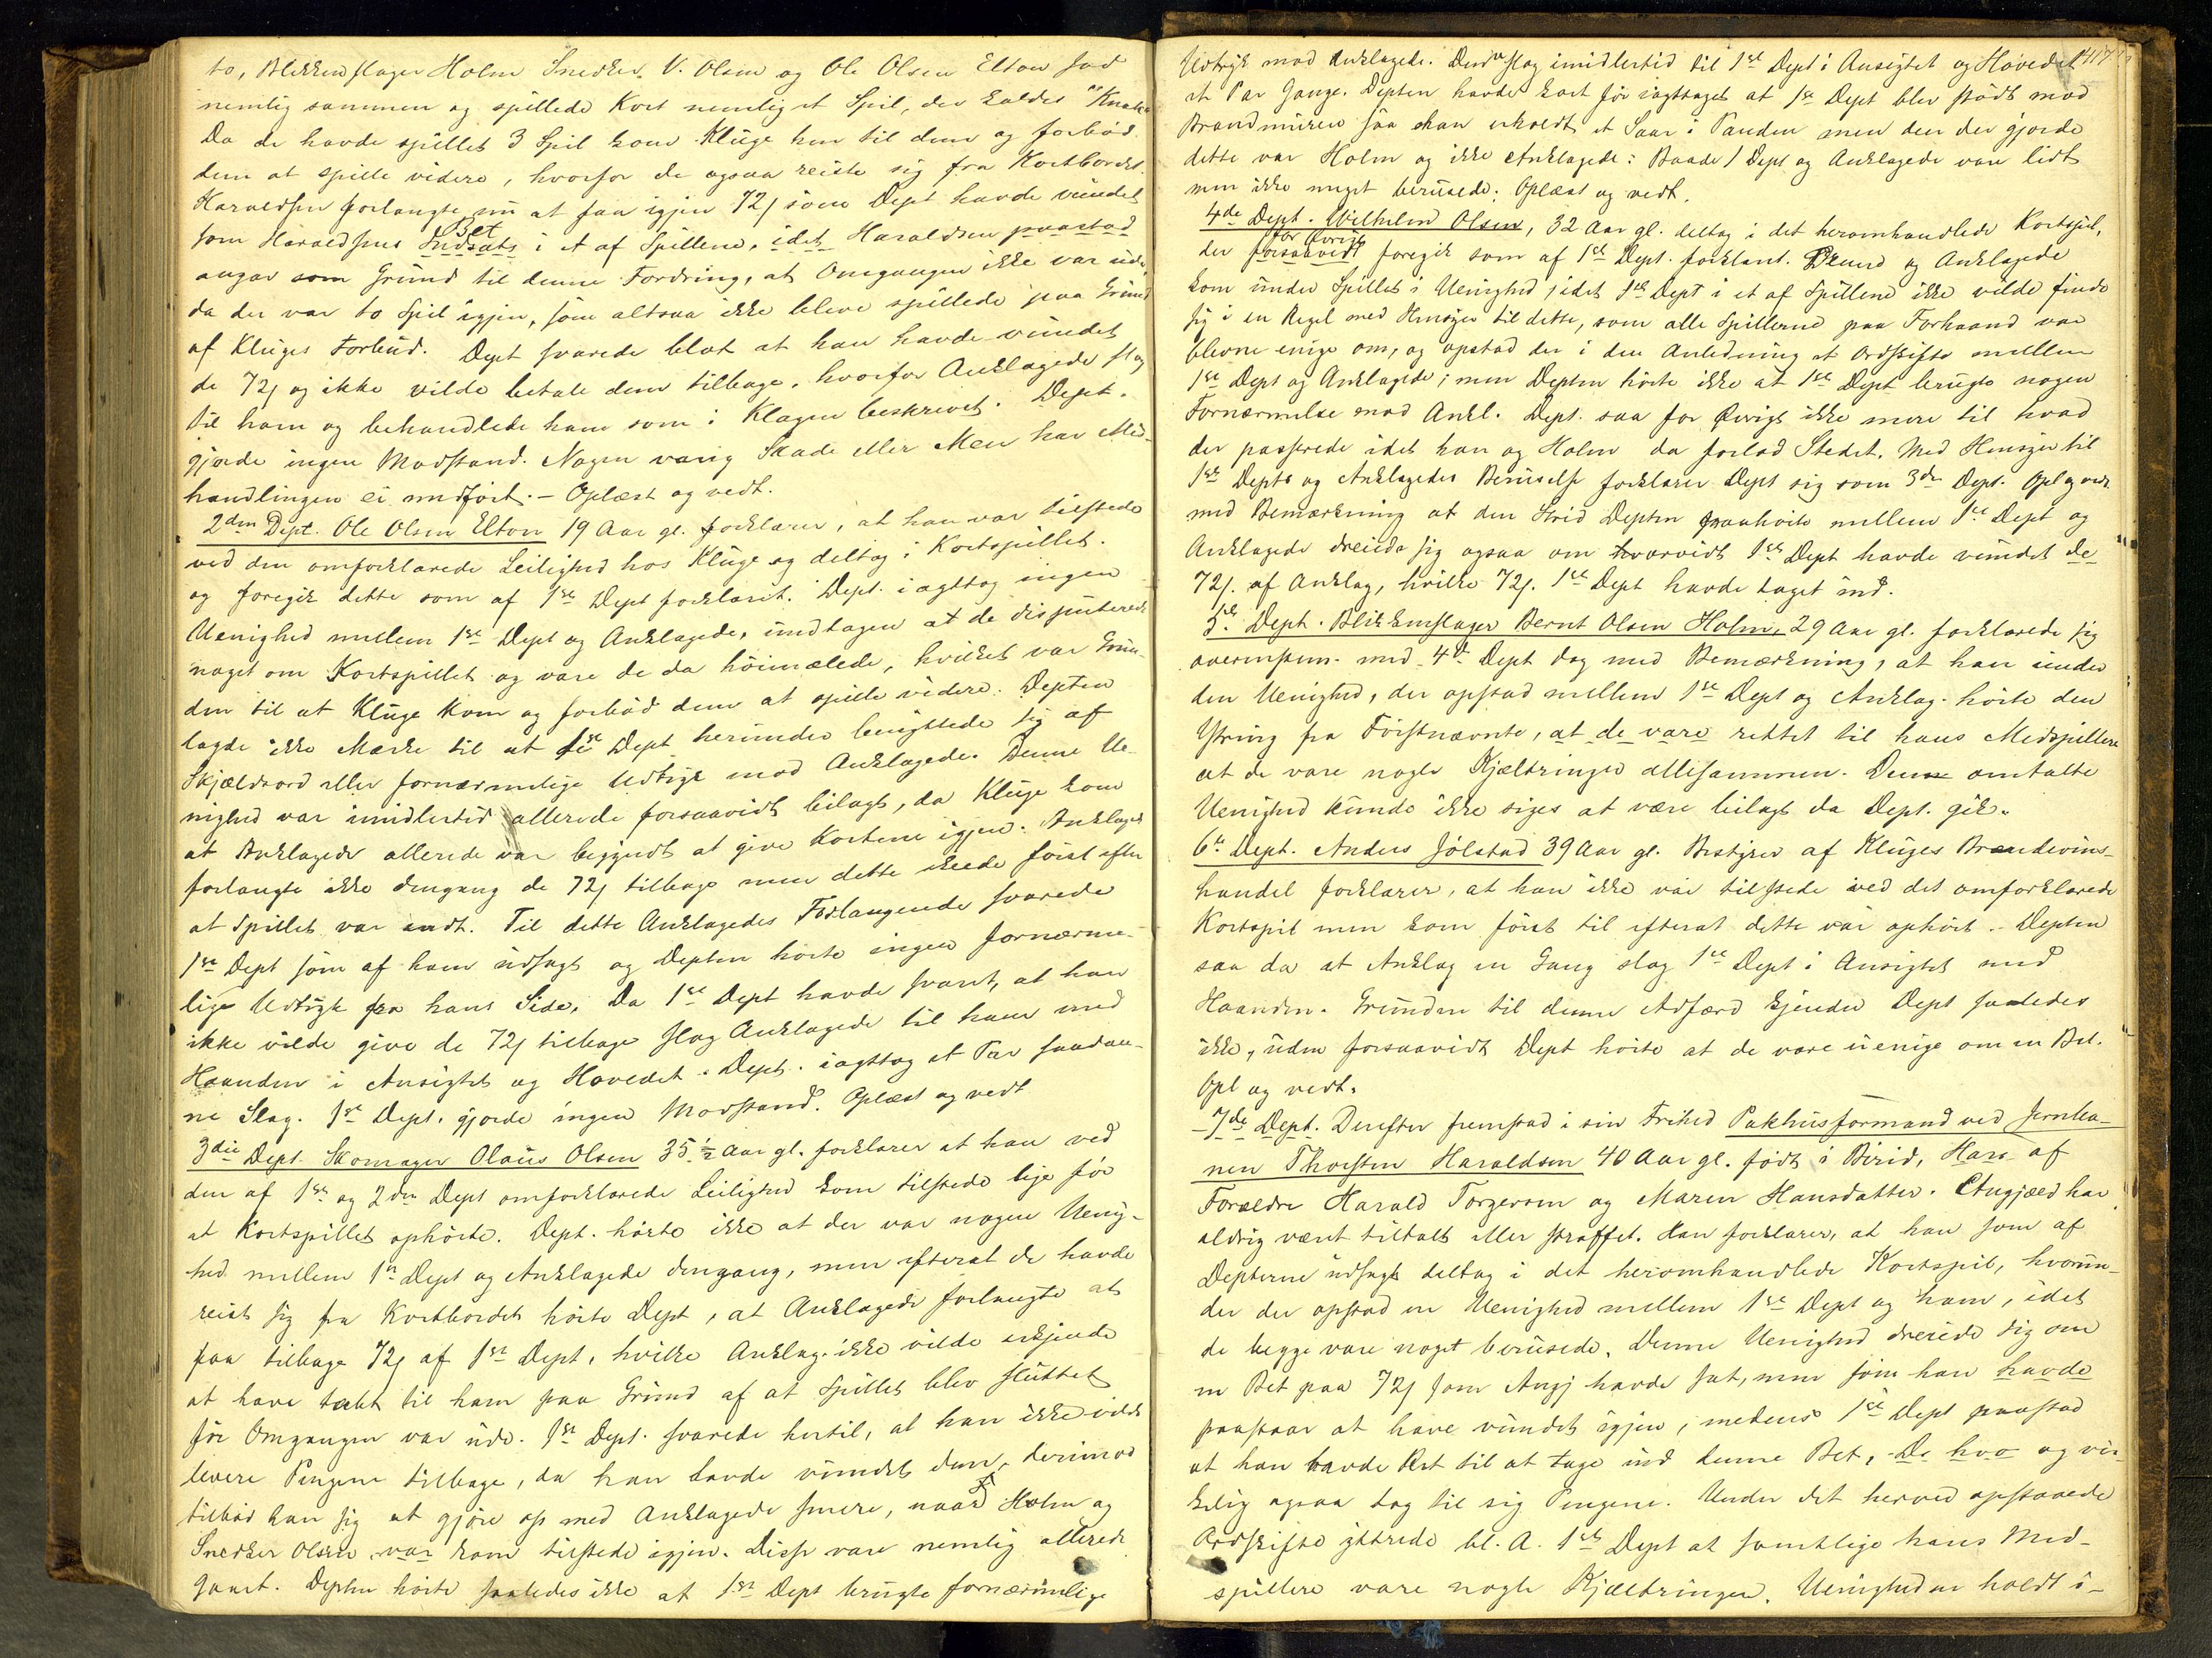 to, Blikkenslager Holm Snedker V. Olsen og Ole Olsen Elton sad
nemlig sammen og spillede Kort nemlig et Spil, der kaldes "Knak
Da de havde spillet 3 Spil kom Kluge hen til dem og forbød
dem at spille videre, hvorfor de ogsaa reiste sig fra Kortbordet.
Haraldsen forlangte nu at faa igjen 72 s som Dept havde vundet
Bet
som Haraldsens Indsats i et af Spillene, idet Haraldsen paastod
angav som Grund til denne Fordring, at Omgangen ikke var ude,
da der var to Spil igjen, som altsaa ikke bleve spillede paa Grund
af Kluges Forbud. Dept svarede blot at han havde vundet
de 72 s og ikke vilde betale dem tilbage, hvorfor Anklagede slog
til ham og behandlede ham som i Klagen beskrevet. Dept.
gjorde ingen Modstand. Nogen varig Skade eller Men har Mis-
handlingen ei medført. - Oplæst og vedt.
2den Dept. Ole Olsen Elton 19 Aar gl. forklarer, at han var tilstede
ved den omforklarede Leilighed hos Kluge og deltog i Kortspillet.
og foregik dette som af 1ste Dept forklaret. Dept. iagttog ingen
Uenighed mellem 1ste Dept og Anklagede, undtagen at de disputerede
noget om Kortspillet og vare de da høimælede, hvilket var Grun-
den til at Kluge kom og forbød dem at spille videre. Depten
lagde ikke Mærke til at 1ste Dept herunder benyttede sig af
Skjældsord eller fornærmelige Udtryk mod Anklagede. Denne Ue-
nighed var imidlertid allerede forsaavidt bilagt, da Kluge kom
at Anklagede allerede var begyndt at give Kortene igjen. Anklagede
forlangte ikke dengang de 72 s tilbage men dette skede først efter
at Spillet var endt. Til dette Anklagedes Forlangende svarede
1ste Dept som af ham udsagt og Depten hørte ingen fornærme-
lige Udtryk fra hans Side. Da 1ste Dept havde svaret, at han
ikke vilde give de 72 s tilbage slog Anklagede til ham med
Haanden i Ansigtet og Hovedet. Dept. iagttog et Par saadan-
ne Slag. 1ste Dept. gjorde ingen Modstand. Oplæst og vedt
3die Dept. Skomager Olaus Olsen 35 ½ Aar gl. forklarer at han ved
den af 1ste og 2den Dept omforklarede Leilighed kom tilstede lige før
at Kortspillet ophørte. Dept. hørte ikke at der var nogen Uenig-
hed mellem 1ste Dept og Anklagede dengang, men efterat de havde
reist sig fra Kortbordet hørte Dept, at Anklagede forlangte at
faa tilbage 72 s af 1ste Dept, hvilke Anklag. ikke vilde erkjende
at have tabt til ham paa Grund af at Spillet blev sluttet
før Omgangen var ude. 1ste Dept. svarede hertil, at han ikke vilde
levere Pengene tilbage, da han havde vundet dem, derimod
tilbød han sig at gjøre op med Anklagede senere, naar Holm og
Snedker Olsen var kom tilstede igjen. Disse vare nemlig allerede
gaaet. Depten hørte saaledes ikke at 1ste Dept brugte fornærmelige
417
Udtryk mod Anklagede. Denne slog imidlertid til 1ste Dept i Ansigtet og Hovedet
et Par Gange. Depten havde kort før iagttaget at 1ste Dept blev stødt mod
Brandmuren saa han erholdt et Saar i Panden men den der gjorde
dette var Holm og ikke Anklagede: Baade 1 Dept og Anklagede vare lidt
men ikke meget berusede. Oplæst og vedt.
4de Dept. Wilhelm Olsen, 32 Aar gl. deltog i det heromhandlede Kortspil,
for Øvrigt
der forsaavidt foregik som af 1ste Dept. forklaret. Denne og Anklagede
kom under Spillet i Uenighed, idet 1ste Dept i et af Spillene ikke vilde finde
sig i en Regel med Hensyn til dette, som alle Spillerne paa Forhaand var
blevne enige om, og opstod der i den Anledning et Ordskifte mellem
1ste Dept og Anklagede; men Depten hørte ikke at 1ste Dept brugte nogen
Fornærmelse mod Ankl. Dept. saa for Øvrigt ikke mere til hvad
der passerede idet han og Holm da forlod Stedet. Med Hensyn til
1ste Depts og Anklagedes Beruselse forklarer Dept sig som 3die Dept. Opl og vedt
med Bemærkning at den Strid Depten paahørte mellem 1ste Dept og
Anklagede dreiede sig ogsaa om hvorvidt 1ste Dept havde vundet de
72 s. af Anklag, hvilke 72 s. 1ste Dept havde taget ind.
5te Dept. Blikkenslager Bernt Olsen Holm, 29 Aar gl. forklarede sig
overensstem. med 4de Dept dog med Bemærkning, at han under
den Uenighed, der opstod mellem 1ste Dept og Anklag. hørte den
Ytring fra Førstnævnte, at de vare rettet til hans Medspillere
at de vare nogle Kjæltringer allesammen. Denne omtalte
Uenighed kunde ikke siges at være bilagt da Dept. gik.
6te Dept. Anders Jølstad 39 Aar gl. Bestyrer af Kluges Brændevins-
handel forklarer, at han ikke var tilstede ved det omforklarede
Kortspil men kom først til efterat dette var ophørt. Depten
saa da at Anklag en Gang slog 1ste Dept i Ansigtet med
Haanden. Grunden til denne Adfærd kjender Dept saaledes
ikke, uden forsaavidt Dept hørte at de vare uenige om en Bet.
Opl og vedt.
- 7de Dept. Derefter fremstod i sin Frihed Pakhusformand ved Jernba-
nen Thorsten Haraldsen 40 Aar gl. født i Birid, Han af
Forældre Harald Torgersen og Maren Hansdatter. Angjæld har
aldrig været tiltalt eller straffet. Han forklarer, at han som af
Depterne udsagt deltog i det heromhandlede Kortspil, hvorun-
der der opstod en Uenighed mellem 1ste Dept og ham, idet
de begge vare noget berusede. Denne Uenighed dreiede sig om
en Bet paa 72 s som Angj havde sat, men som han havde
paastaar at have vundet igjen, medens 1ste Dept paastod
at han havde Ret til at tage ind denne Bet, De hvo og vir-
kelig ogsaa tog til sig Pengene. Under det herved opstaaede
Ordskifte yttrede bl. A. 1ste Dept at samtlige hans Med-
spillere vare nogle Kjæltringer. Uenigheden holdt i-